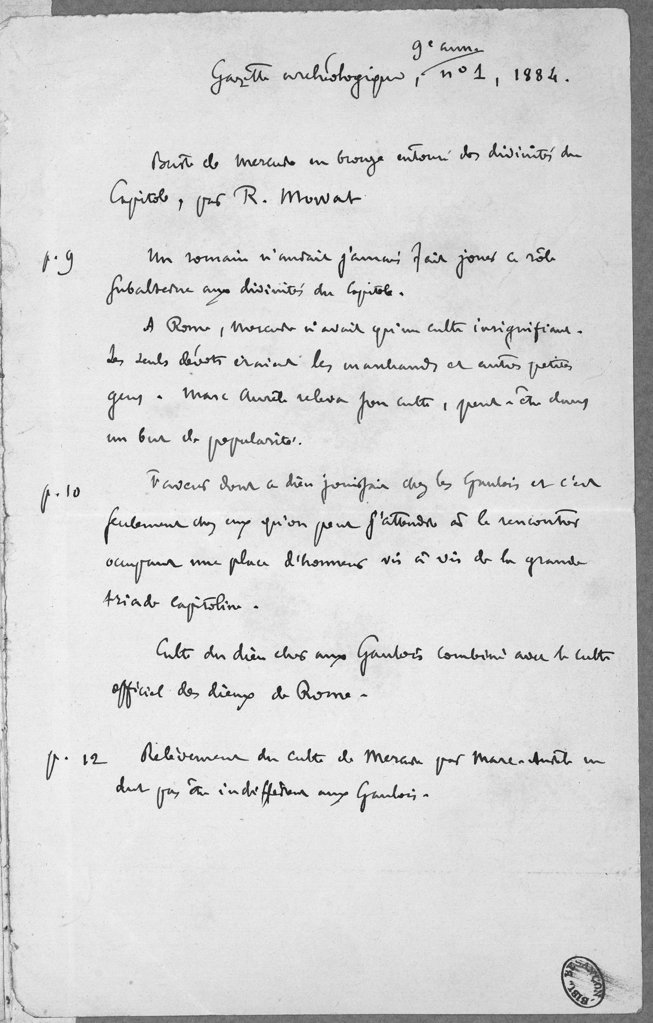 9e année
Gazette archéologique, n° 1, 1884.
Buste de Mercure en bronze entouré des divinités du
Capitole, par R. Mowat
p. 9 Un romain n'aurait jamais fait jouer ce rôle
subalterne aux divinités du Capitole.
A Rome, Mercure n'avait qu'un culte insignifiant.
Les seuls dévots étaient les marchands et autres petites
gens. Marc Aurèle releva son culte, peut-être dans
un but de popularité.
p. 10 Faveur dont ce dieu jouissait chez les Gaulois et c'est
seulement chez eux qu'on peut s'attendre à le rencontrer
occupant une place d'honneur vis à vis de la grande
triade capitoline.
Culte du dieu cher aux Gaulois combiné avec le culte
officiel des dieux de Rome.
p. 12 Relèvement du culte de Mercure par Marc-Aurèle ne
dut pas être indifférent aux Gaulois.
BIBL. BESANCON